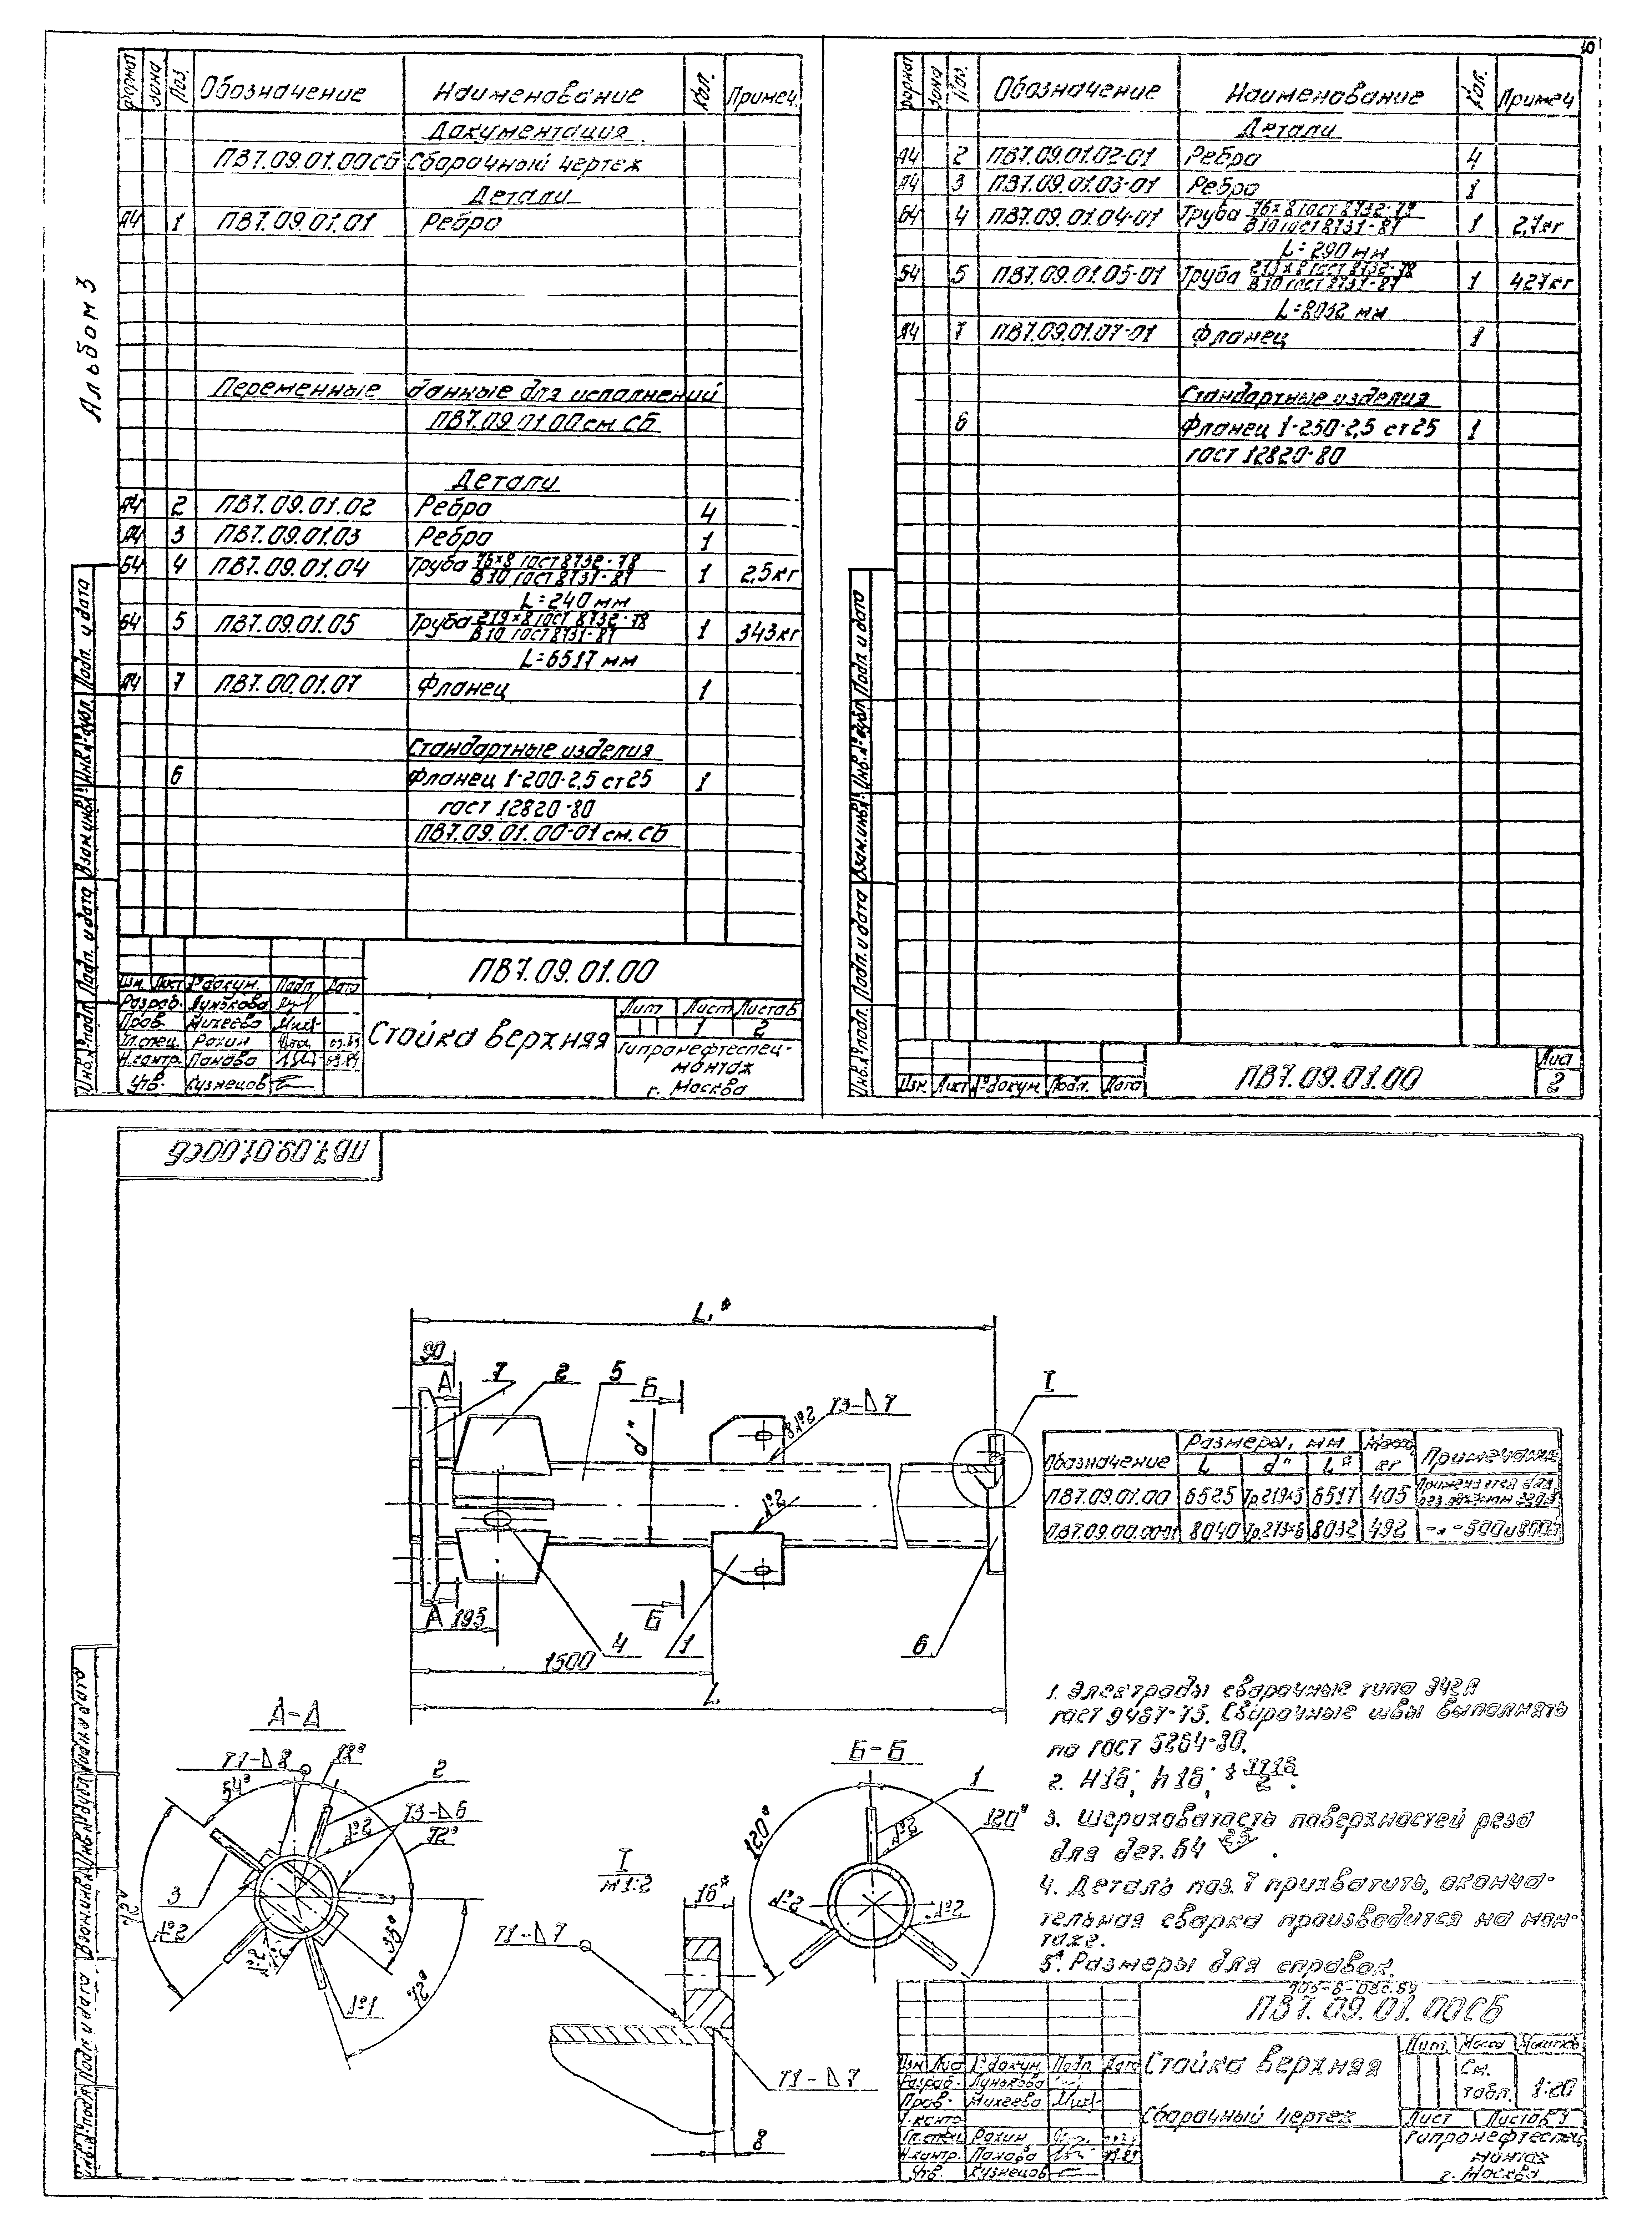 10
Альбом 3
Формат Зона Поз. Обозначение Наименование Кол. Примеч.
Документация
ПВ7.09.01.00СБ Сборочный чертеж
Детали
А4 1 ПВ7.09.01.01 Ребро
Переменные данные для исполнений
ПВ7.09.01.00 см. СБ
Детали
А4 2 ПВ7.09.01.02 Ребро 4
А4 3 ПВ7.09.01.03 Ребро 1
Б4 4 ПВ7.09.01.04 Труба 76×8 ГОСТ 8732-78 1 2,5кг
В10 ГОСТ 8731-87
L=240 мм
Б4 5 ПВ7.09.01.05 Труба 219×8 ГОСТ 8732-78 1 343кг
В10 ГОСТ 8731-87
L=6517 мм
А4 7 ПВ7.00.01.07 Фланец 1
Стандартные изделия
6 Фланец 1-200-2,5 ст25 1
ГОСТ 12820-80
ПВ7.09.01.00-01 см. СБ
ПВ7.09.01.00
Изм. Лист № докум. Подп. Дата
Разраб. Лунькова
Пров. Михеева
Гл.спец. Рохин 09.89
Н.контр. Панова 09.89
Утв. Кузнецов
Стойка верхняя
Лит Лист Листов
1 2
Гипронефтеспец-
монтаж
г. Москва
Инв.№подл. Подп. и дата Взам.инв.№ Инв.№дубл. Подп. и дата
Формат Зона Поз. Обозначение Наименование Кол. Примеч
Детали
А4 2 ПВ7.09.01.02-01 Ребро 4
А4 3 ПВ7.09.01.03-01 Ребро 1
Б4 4 ПВ7.09.01.04-01 Труба 76×8 ГОСТ 8732-78 1 2,7кг
В10 ГОСТ 8731-87
L=290 мм
Б4 5 ПВ7.09.01.05-01 Труба 273×8 ГОСТ 8732-78 1 427кг
В10 ГОСТ 8731-87
L=8032 мм
А4 7 ПВ7.09.01.07-01 Фланец 1
Стандартные изделия
6 Фланец 1-250-2,5 ст25 1
ГОСТ 12820-80
Изм Лист № докум. Подп. Дата
ПВ7.09.01.00
Лист
2
Инв.№подл. Подп. и дата Взам.инв.№ Инв.№дубл. Подп. и дата
ПВ7.09.01.00СБ
L₁*
90
А 7 2 5 Б
d*
№2
Т3-△7
I
№2
А 193
4 Б 1 6
1500
L
Обозначение Размеры, мм Масса Примечание
L d* L* кг
ПВ7.09.01.00 6525 6517 405
ПВ7.09.00.00-01 8040 8032 492
А-А
Т1-△8 18°
54° 2
Т3-△6
№2
72°
3
№2
№2
№1
72°
I
М1:2
16*
Т1-△7
Т1-△7
8
Б-Б
1
120° 120°
№2
№2 №2
1. Электроды сварочные типа Э42А
ГОСТ 9467-75. Сварочные швы выполнять
по ГОСТ 5264-80.
2. Н16; h16;
3. Шероховатость поверхностей реза
для дет. Б4
4. Деталь поз. 7 прихватить, оконча-
тельная сварка производится на мон-
таже.
5*. Размеры для справок.
ПВ7.09.01.00СБ
Изм Лист № докум. Подп. Дата
Разраб. Лунькова
Пров. Михеева
Т.контр
Гл.спец Рохин
Н.контр. Панова
Утв. Кузнецов
Стойка верхняя
Сборочный чертеж
Лит. Масса Масштаб
См.
табл. 1:20
Лист Листов 1
Гипронефтеспец
монтаж
г. Москва
Инв.№подл. Подп. и дата Взам.инв.№ Инв.№дубл. Подп. и дата